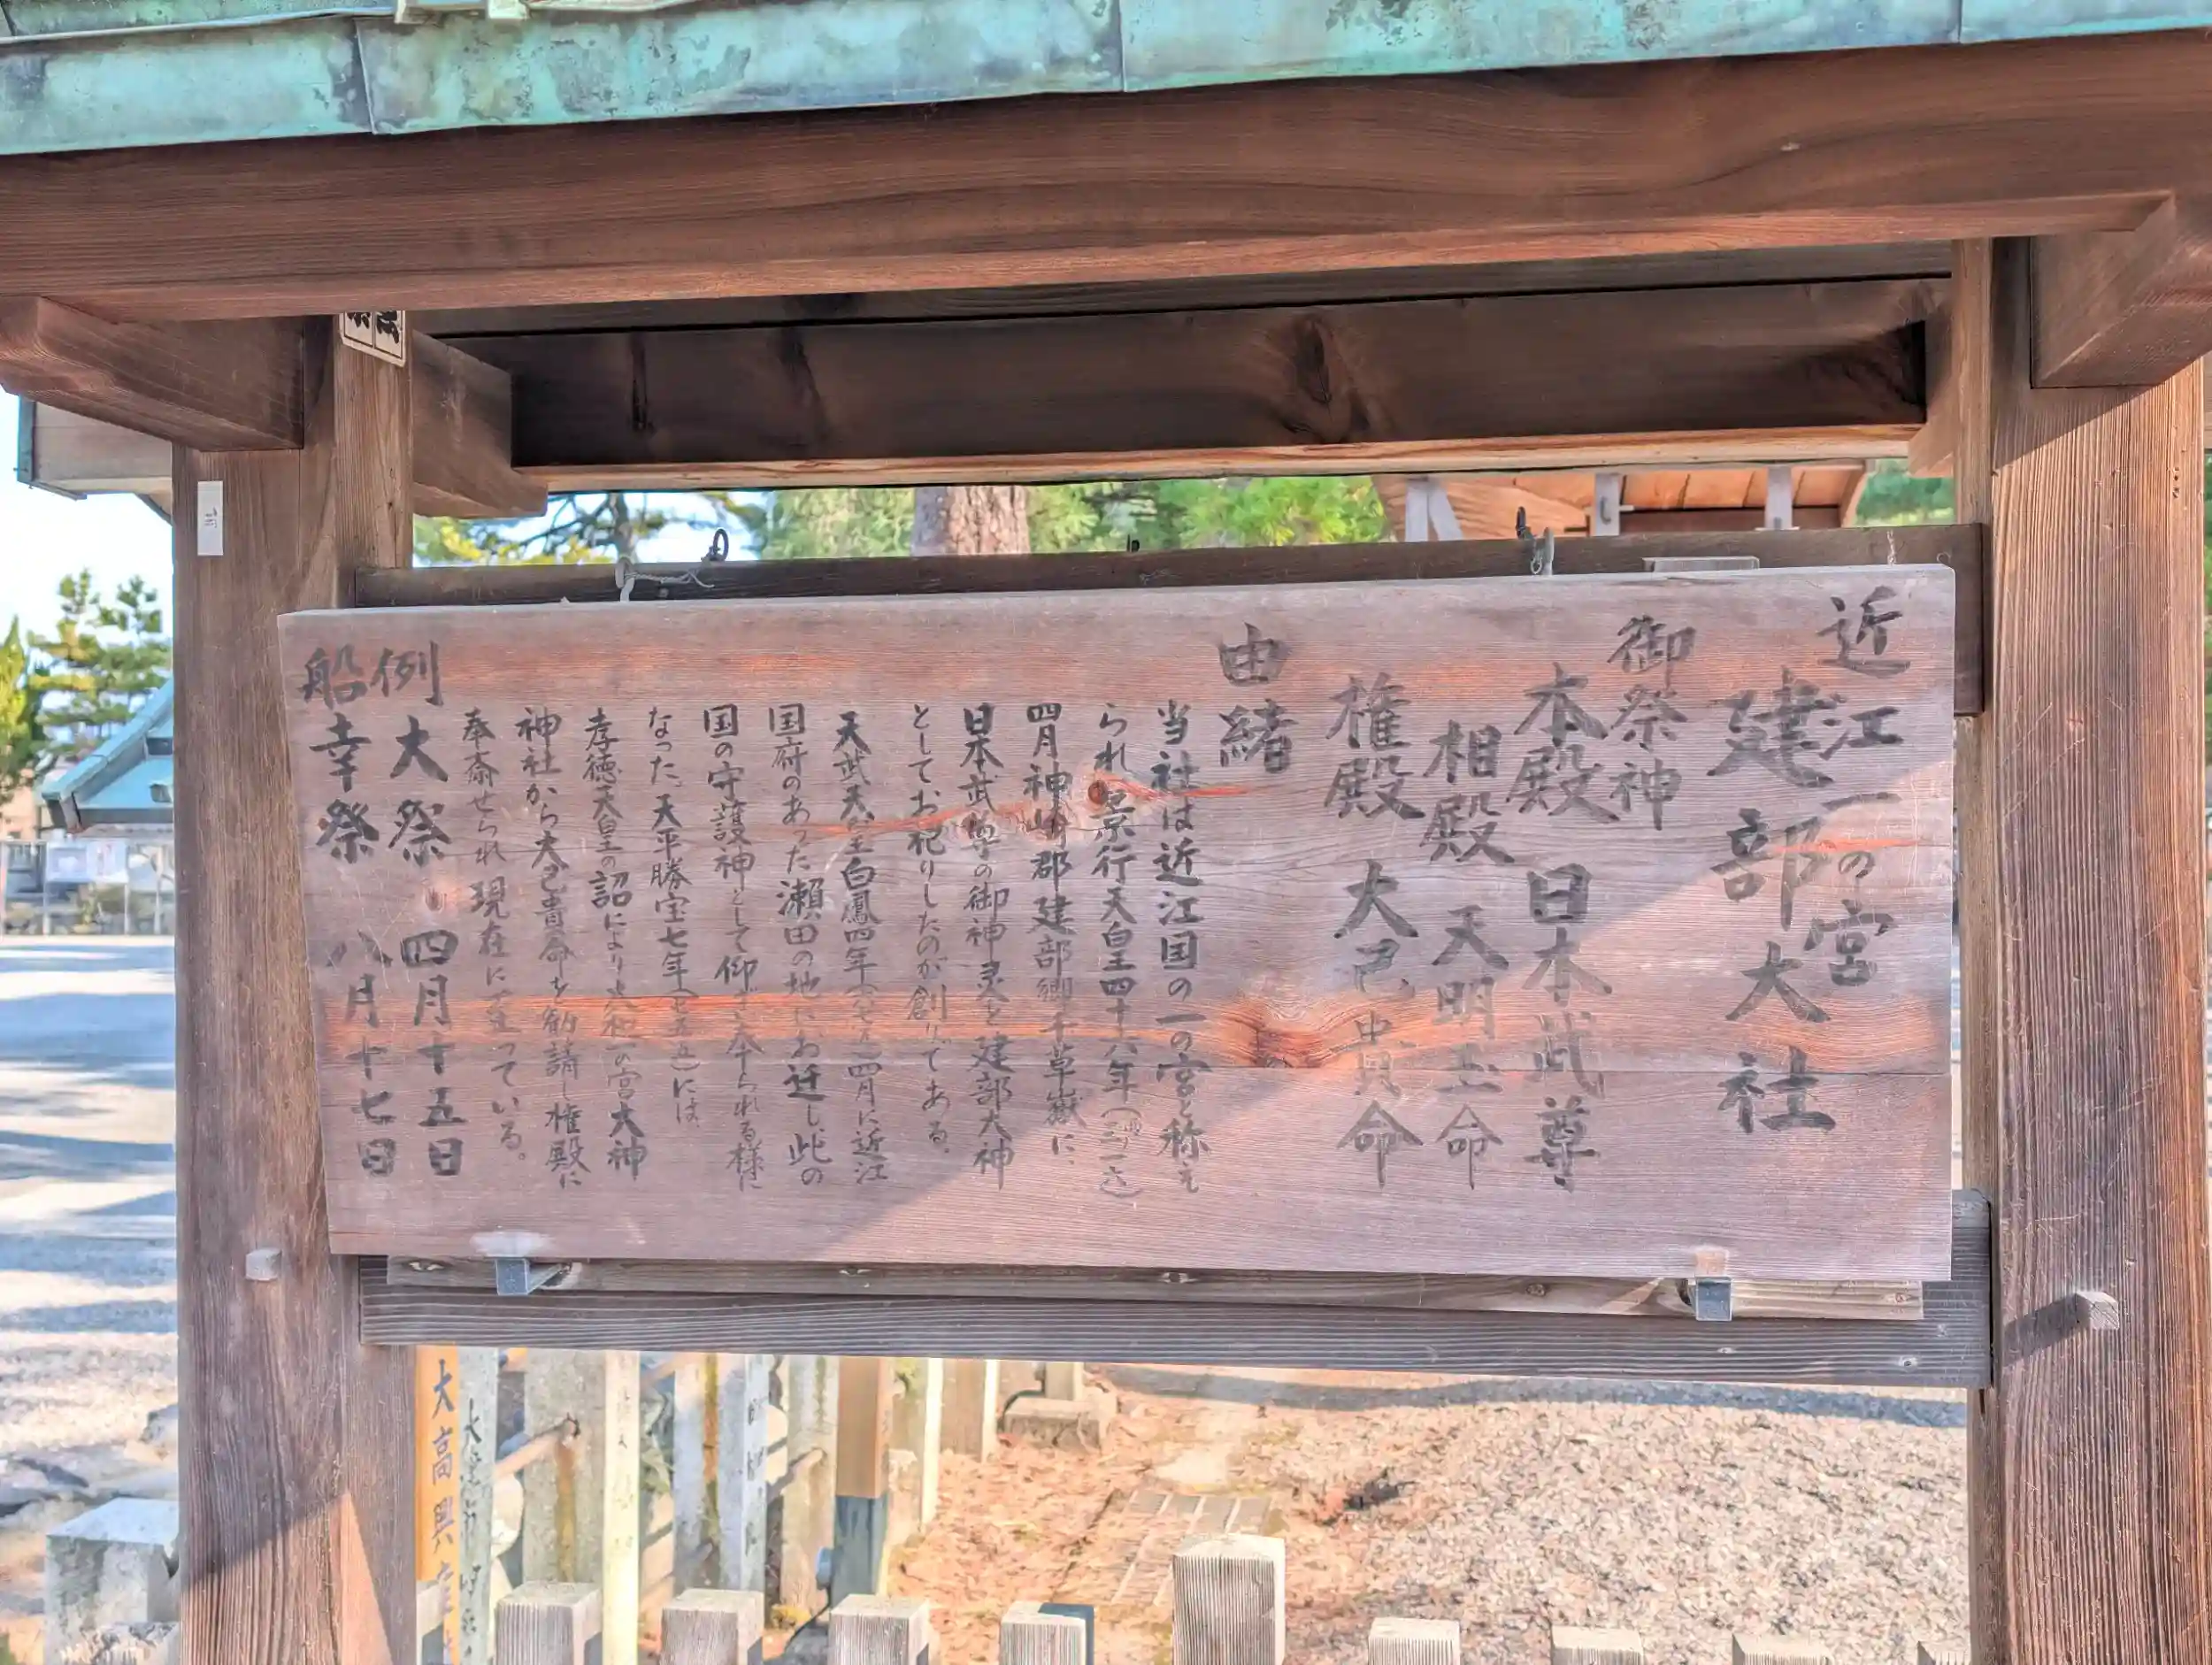 近江一の宮
建部大社
御祭神
本殿 日本武尊
相殿 天明玉命
権殿 大己貴命
由緒
当社は近江国の一の宮と称え
られ、景行天皇四十六年(三一六)
四月神崎郡建部郷千草嶽に、
日本武尊の御神霊を建部大神
としてお祀りしたのが創りである。
天武天皇白鳳四年(六七五)四月に近江
国府のあった瀬田の地にお迁し、此の
国の守護神として仰ぎ奉られる様に
なった。天平勝宝七年(七五五)には
孝徳天皇の詔により大和一の宮大神
神社から大己貴命を勧請し権殿に
奉斎せられ現在に至っている。
例大祭 四月十五日
船幸祭 八月十七日
大高興